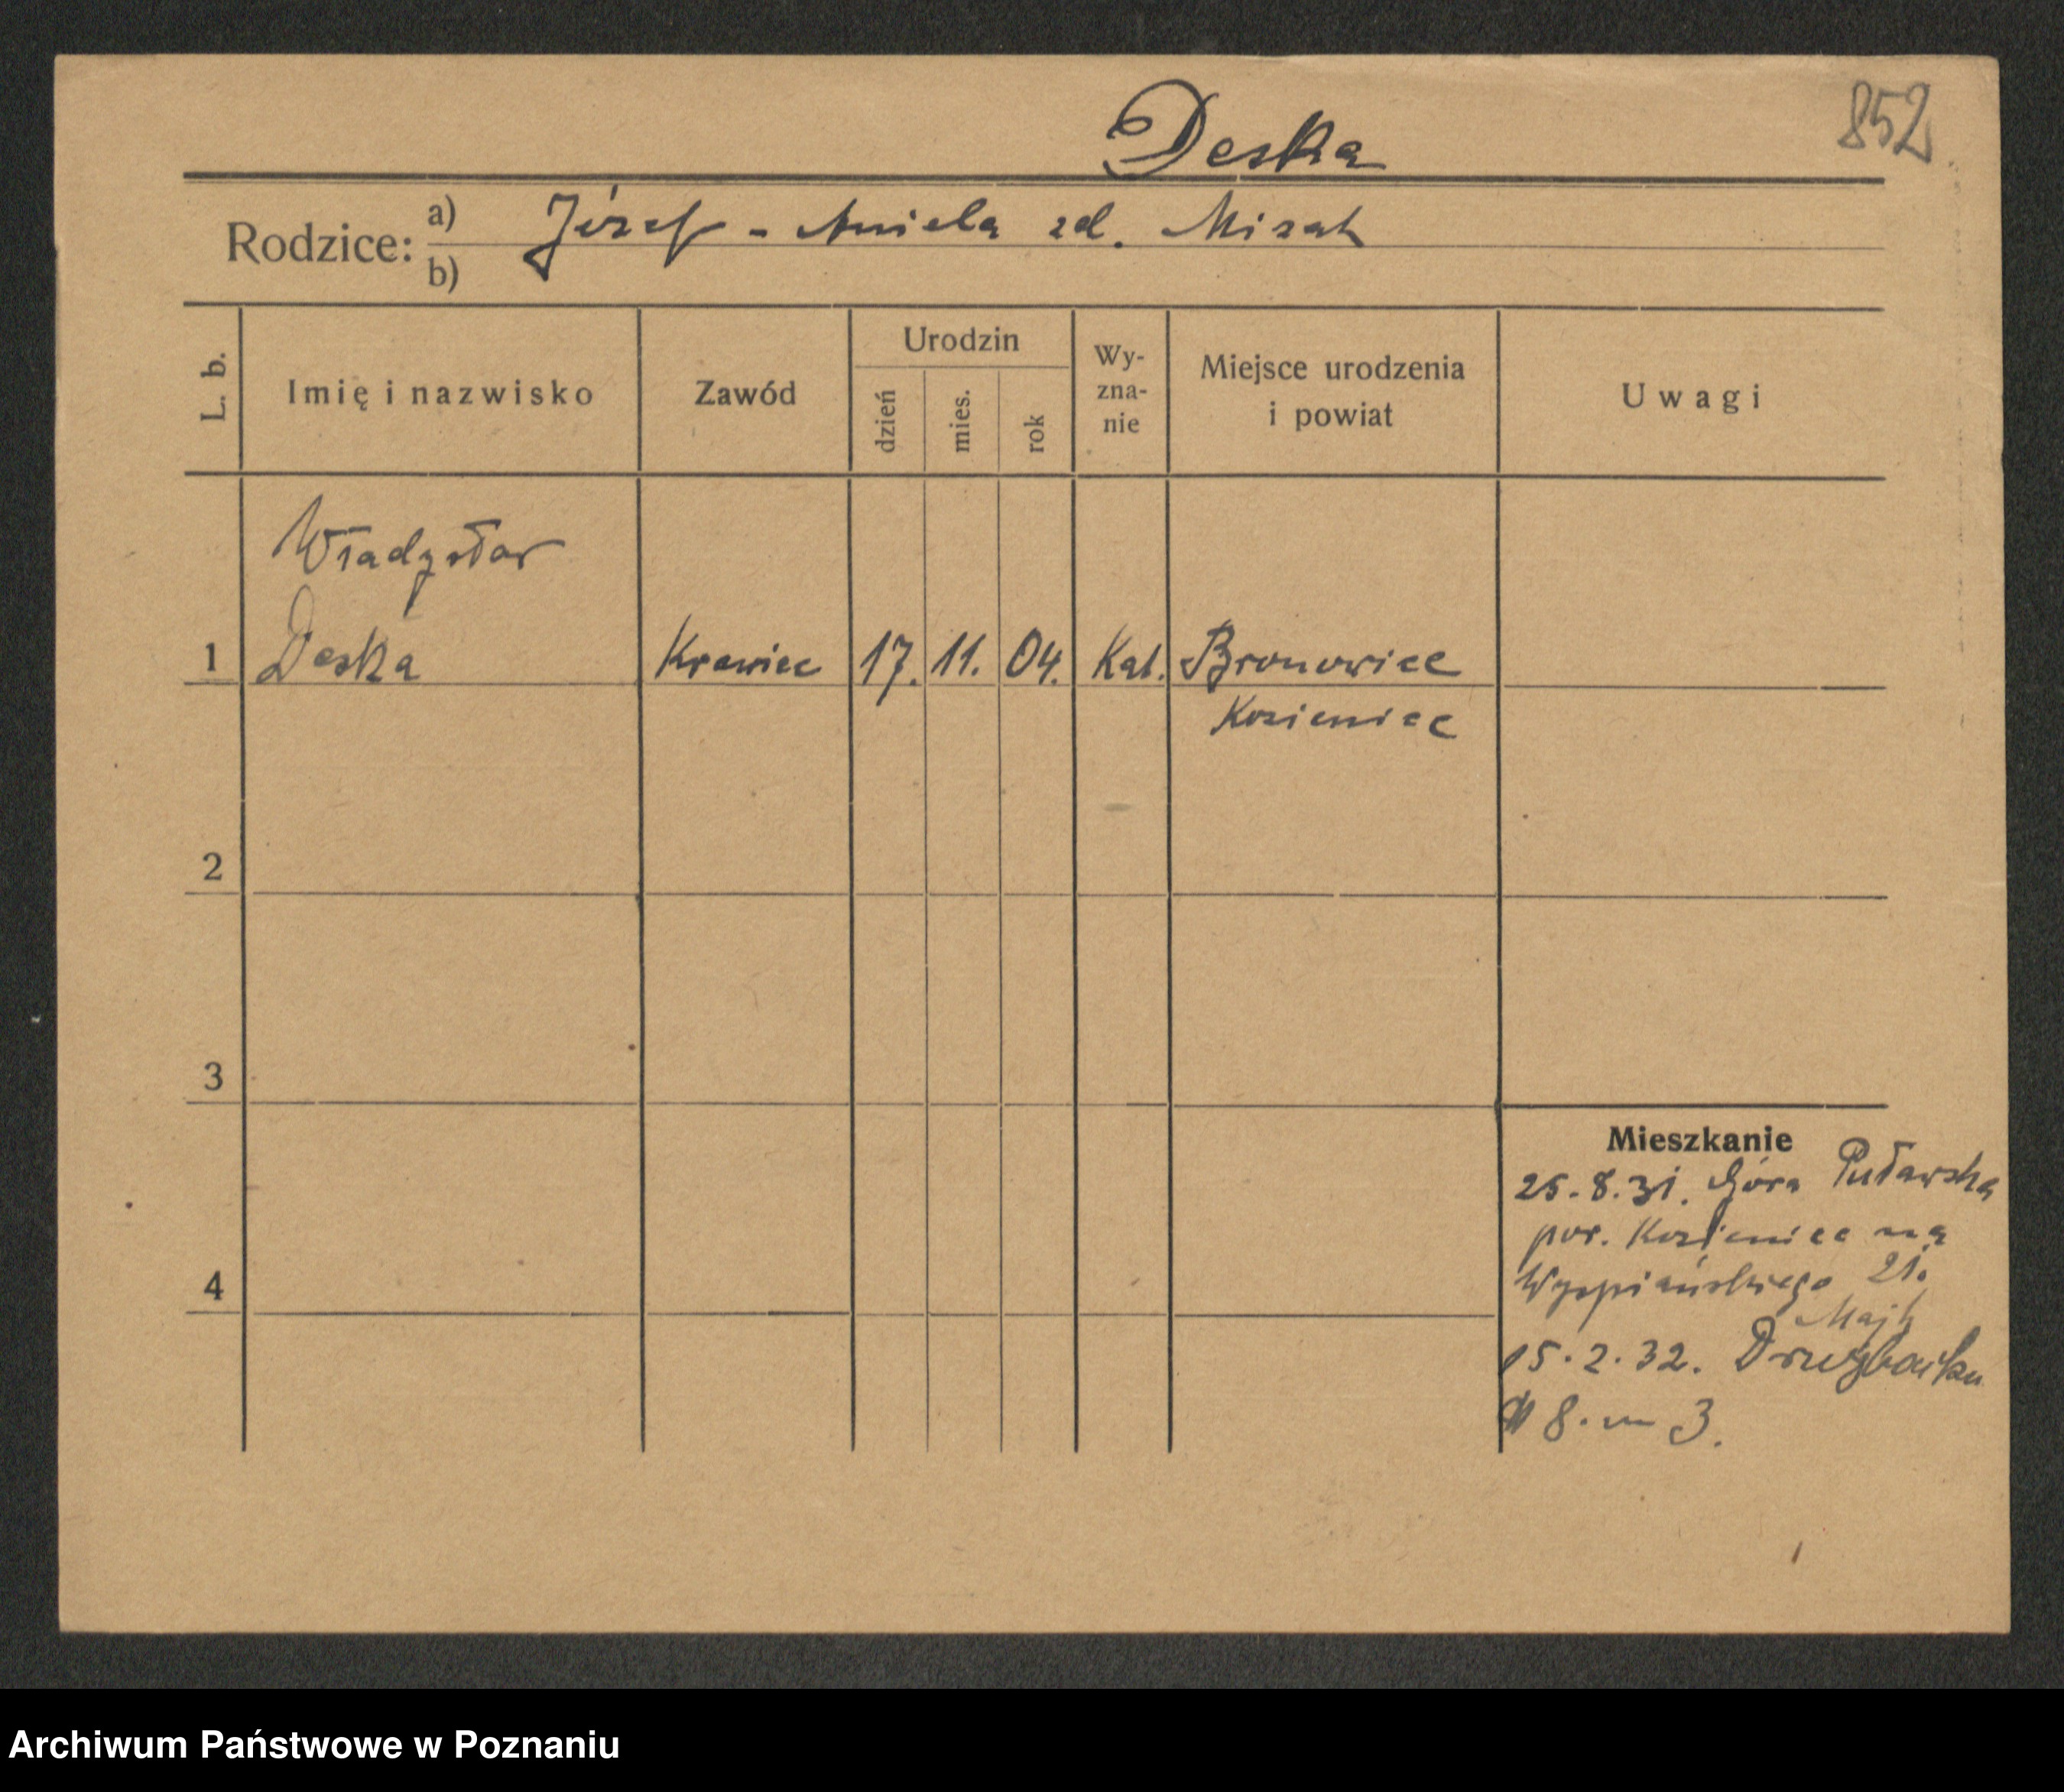 852
Deska
Rodzice: a) Józef - Aniela zd. Mizak
b)
L. b. Imię i nazwisko Zawód Urodzin dzień mies. rok Wy-zna-nie Miejsce urodzenia i powiat Uwagi
Władysław
1 Deska Krawiec 17. 11. 04. Kat. Bronowice
Kozienice
2
3
4
Mieszkanie
25.8.31. Góra Puławska
pow. Kozienice na
Wyspiańskiego 21.
Majk
15.2.32. Drużbacka
8. m 3.
Archiwum Państwowe w Poznaniu